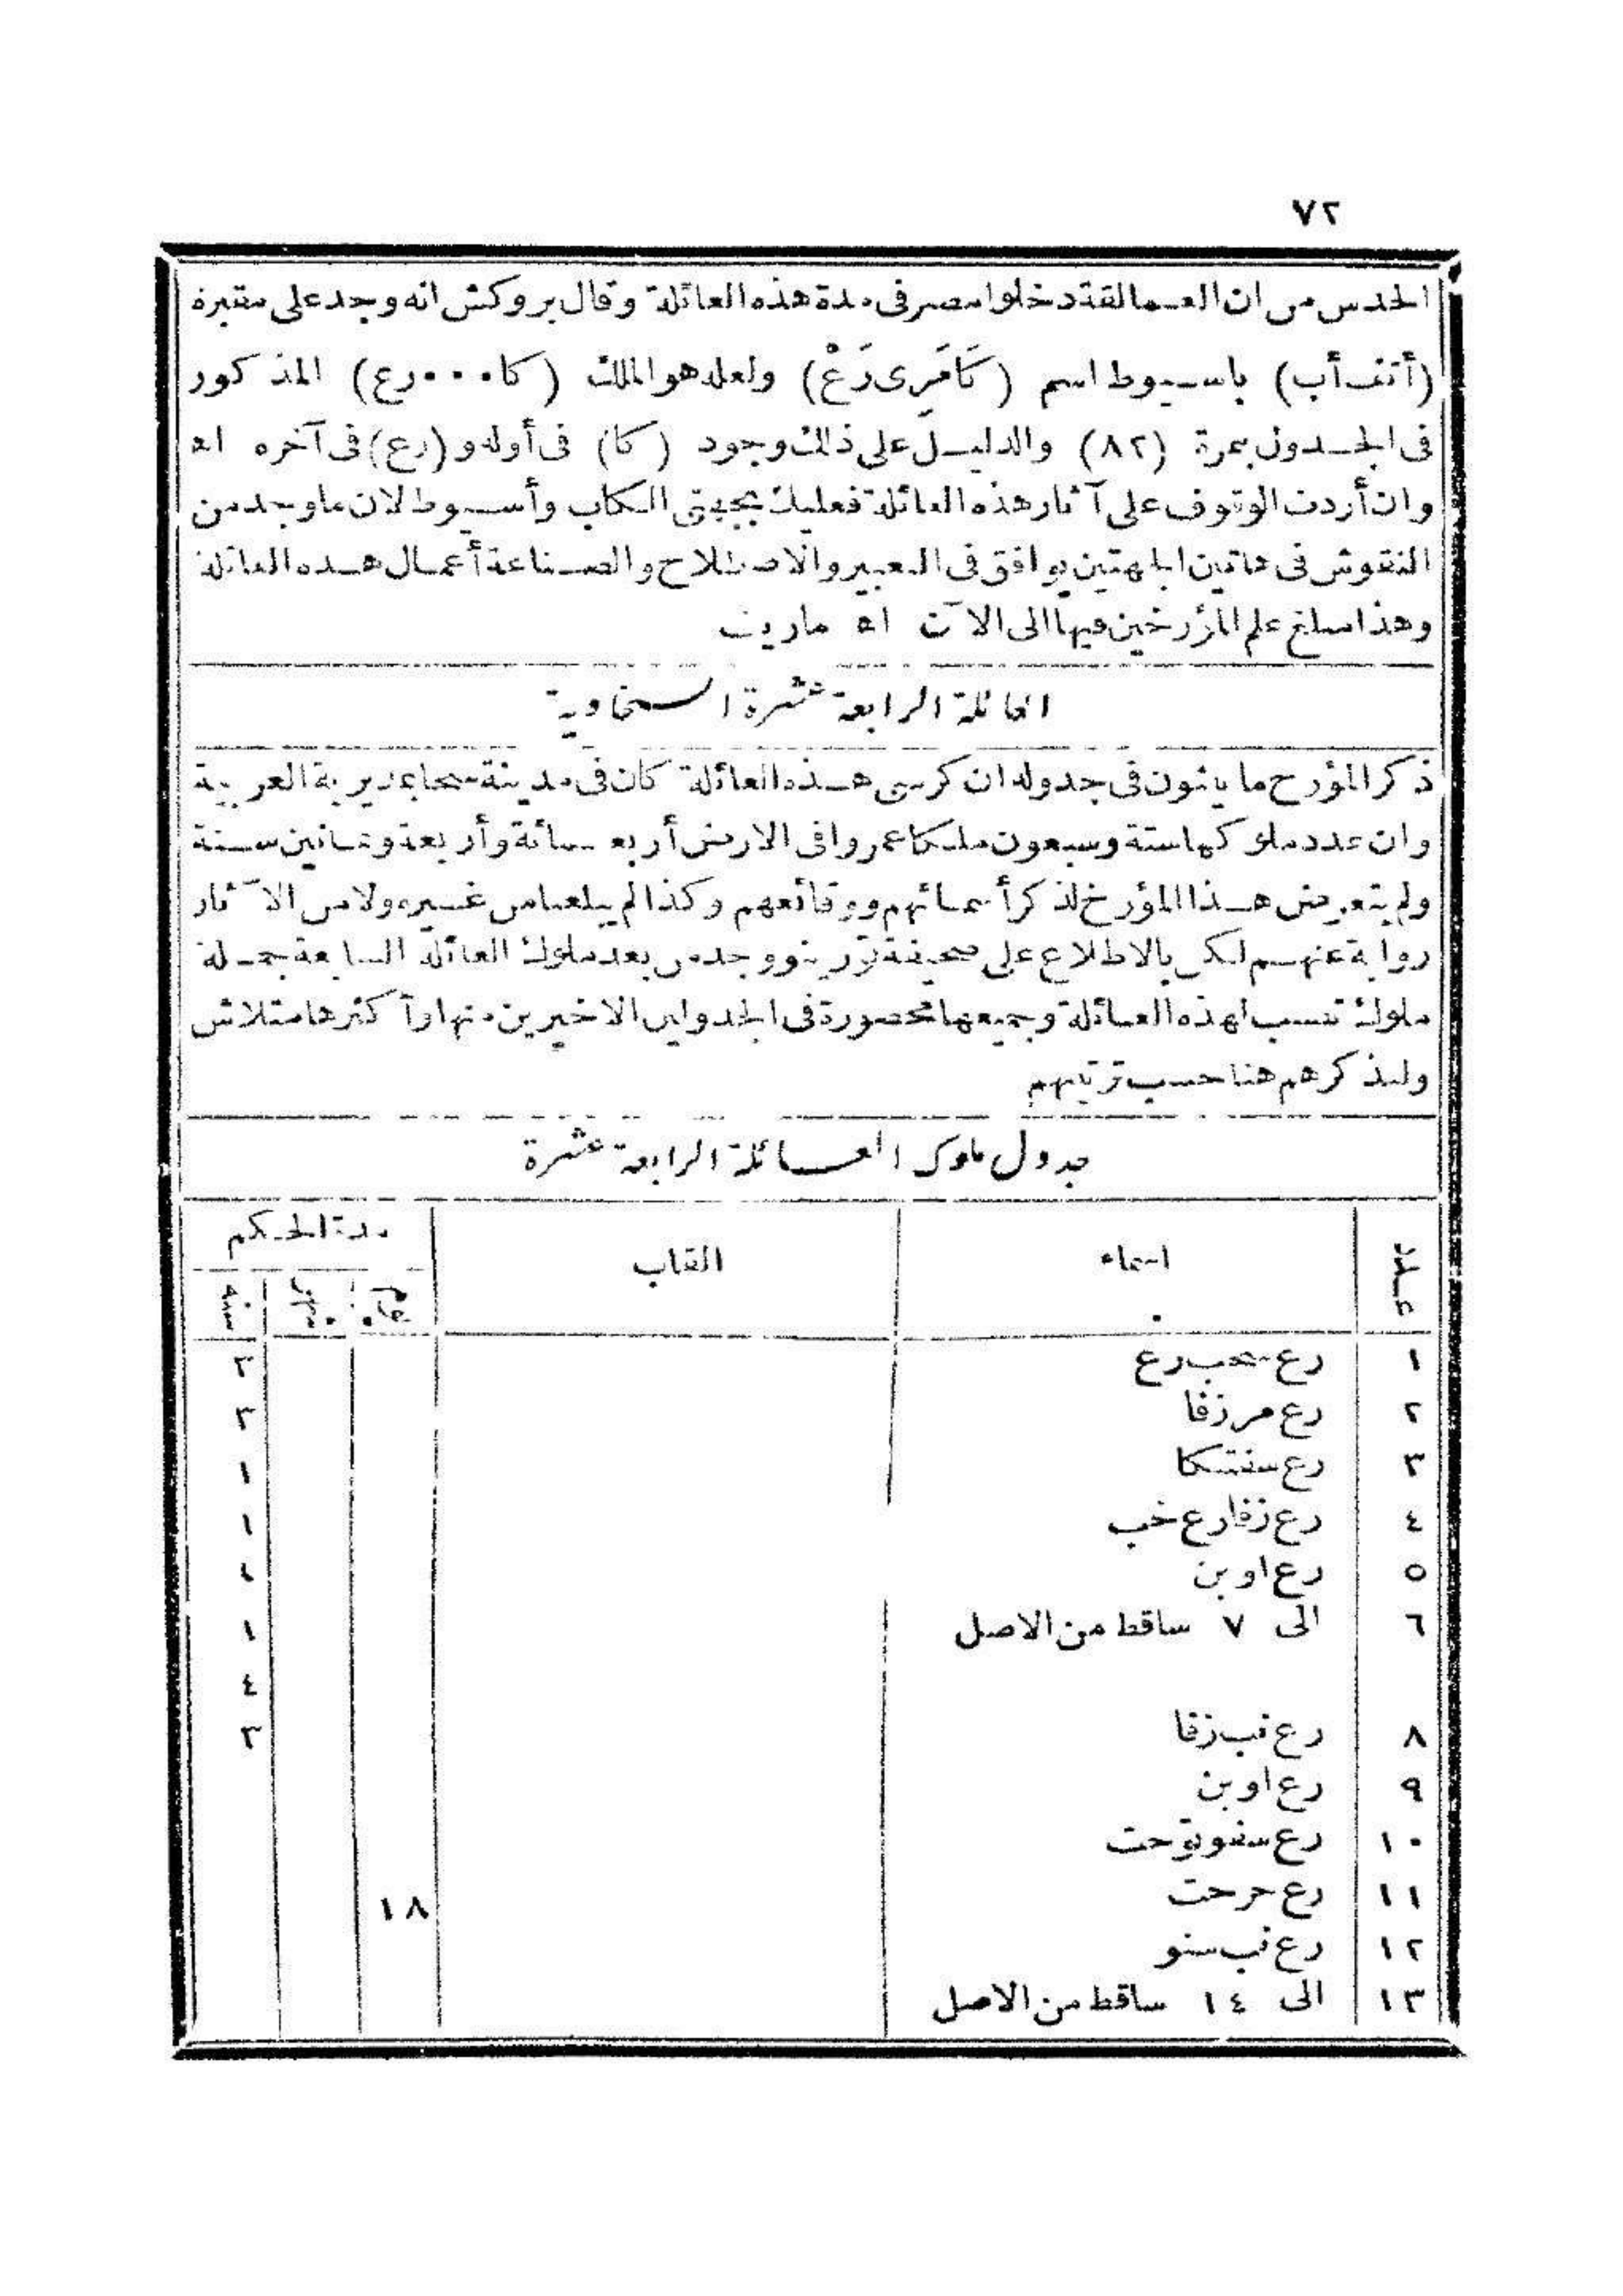 ٧٢
الحدس من ان العمالقة دخلوا مصر فى مدة هذه العائلة وقال بروكش انه وجد على مقبرة
(أتف أب) باسيوط اسم (كَامَرِى رَعْ) ولعله هو الملك (كا٠٠٠رع) المذكور
فى الجدول بمرة (٨٢) والدليل على ذلك وجود (كا) فى أوله و(رع) فى آخره اه
وان أردت الوقوف على آثار هذه العائلة فعليك بجهتى الكاب وأسيوط لان ما وجد من
النقوش فى هاتين الجهتين يوافق فى التعبير والاصطلاح والصناعة أعمال هذه العائلة
وهذا مبلغ علم المؤرخين فيها الى الآن اه ماريت
العائلة الرابعة عشرة السخاوية
ذكر المؤرخ مانيثون فى جدوله ان كرسى هذه العائلة كان فى مدينة سخا بمديرية الغربية
وان عدد ملوكها ستة وسبعون ملكا عمروا فى الارض أربعمائة وأربعة وثمانين سنة
ولم يتعرض هذا المؤرخ لذكر أسمائهم ووقائعهم وكذا لم يبلغنا من غيره ولا من الآثار
رواية عنهم لكن بالاطلاع على صحيفة تورينو وجد من بعد ملوك العائلة السابعة جملة
ملوك تنسب لهذه العائلة وجميعها محصورة فى الجدولين الاخيرين منها وأكثرها متلاش
ولنذكرهم هنا حسب ترتيبهم
جدول ملوك العائلة الرابعة عشرة
عدد اسماء القاب مدة الحكم
عام سنة
١ رع سحب رع ٢
٢ رع مرزفا ٣
٣ رع سفنتكا ١
٤ رع زفارع خب ١
٥ رع اوبن ١
٦ الى ٧ ساقط من الاصل ١
٤
٨ رع نب زفا ٣
٩ رع اوبن
١٠ رع سفوتوحت
١١ رع حرحت ١٨
١٢ رع نب سنو
١٣ الى ١٤ ساقط من الاصل